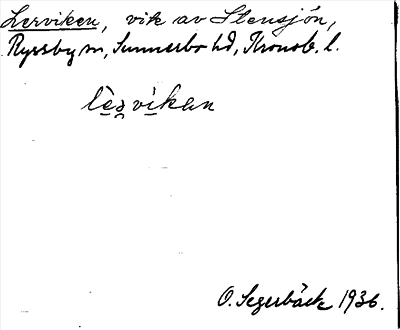 Lerviken, vik av Stensjön,
Ryssby sn, Sunnerbo hd, Kronob. l.
lèṛvikan
O. Segerbäck 1936.